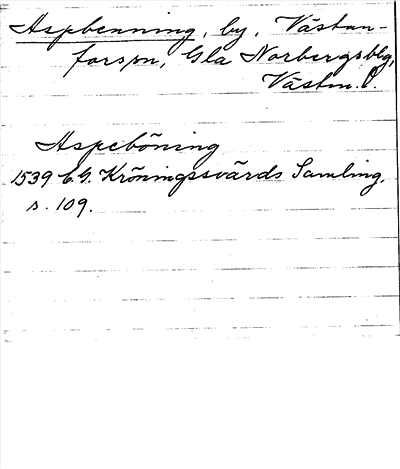 Aspbenning, by, Västan-
forspn, Gla Norbergsblg,
Västm. l.
Aspeböning
1539 C.G. Kröningssvärds Samling,
s. 109.